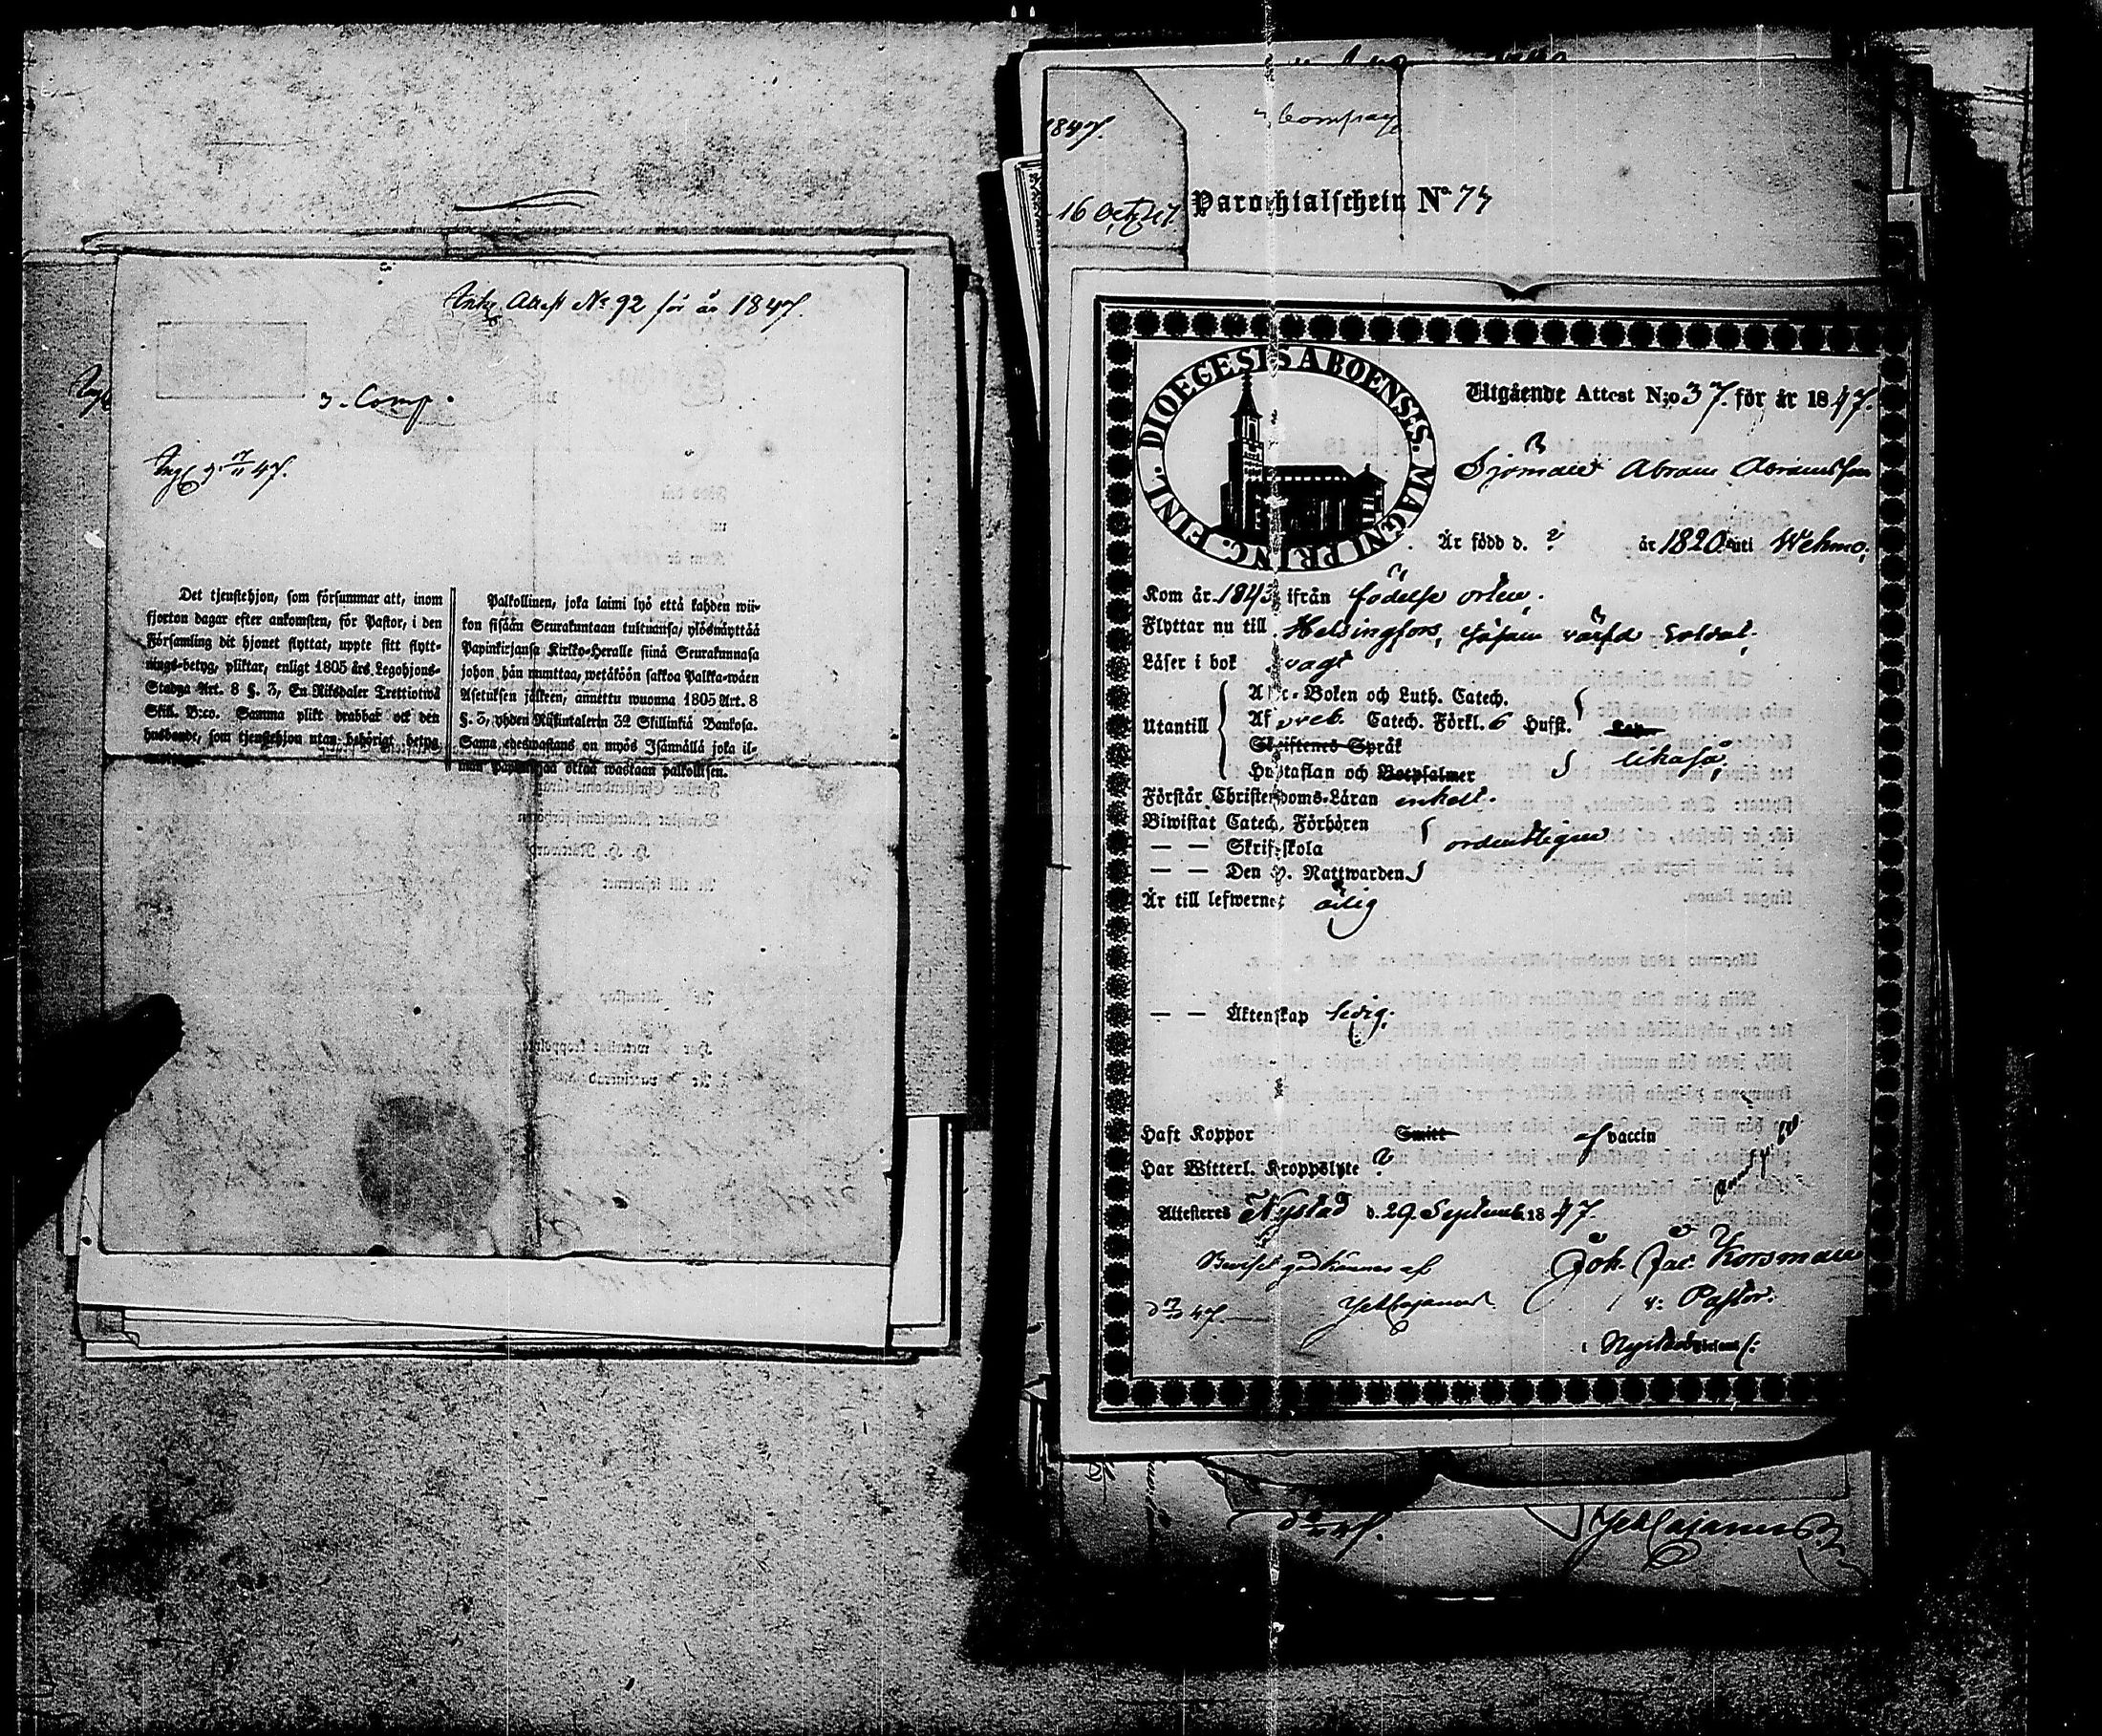 Ank. Attest No 92 för år 1847.
3. Comp.
Det tjenstehjon, som försummar att, inom
fjorton dagar efter ankomsten, för Pastor, i den
Församling dit hjonet flyttat, uppte sitt flytt-
nings-betyg, pliktar, enligt 1805 års Legohjons-
Stadga Art. 8 §. 3, En Riksdaler Trettiotwå
Skill. B:co. Samma plikt drabbar ock den
husbonde, som tjenstehjon utan behörigt betyg
Palkollinen, joka laimi lyö että kahden wii-
kon sisään Seurakuntaan tultuansa, ylösnäyttää
Papinkirjansa Kirkko-Heralle siinä Seurakunnasa
johon hän muuttaa, wetäköön sakkoa Palkka-wäen
Asetuksen jälkeen, annettu wuonna 1805 Art. 8
§. 3, yhden Riikintalerin 32 Skillinkiä Bankosa.
Sama edeswastaus on myös Isännällä joka il-
man Papinkirjaa ottaa wastaan palkollisen.
1847.
Compag
16 Oct 47
Parochialschein No 74
DIOECESIS ABOENSIS. MAGNI PRINC. FINL.
Utgående Attest N:o 37. för år 1847.
Sjöman Abram Abramsson
Är född d. ? år 1820 uti Wehmo.
Kom år 1843 ifrån födelse orten.
Flyttar nu till Helsingfors, såsom värfd Soldat.
Läser i bok svagt
Utantill
Abc-Boken och Luth. Catech.
Af Sveb. Catech. Förkl. 6 Hufst.
Skriftenes Språk
Hustaflan och Botpsalmer
likaså
Förstår Christendoms-Läran enkelt.
Biwistat Catech. Förhören
— — Skriftskola
ordentligen
— — Den H. Nattwarden
Är till lefwernet ärlig
— — Äktenskap ledig.
Haft Koppor Smitt af vaccin
Har Witterl. Kroppslyte ?
Attesteras Nystad d. 29 Septemb. 1847.
Beviset godkännes af
Joh. Jac. Korsman
v. Pastor.